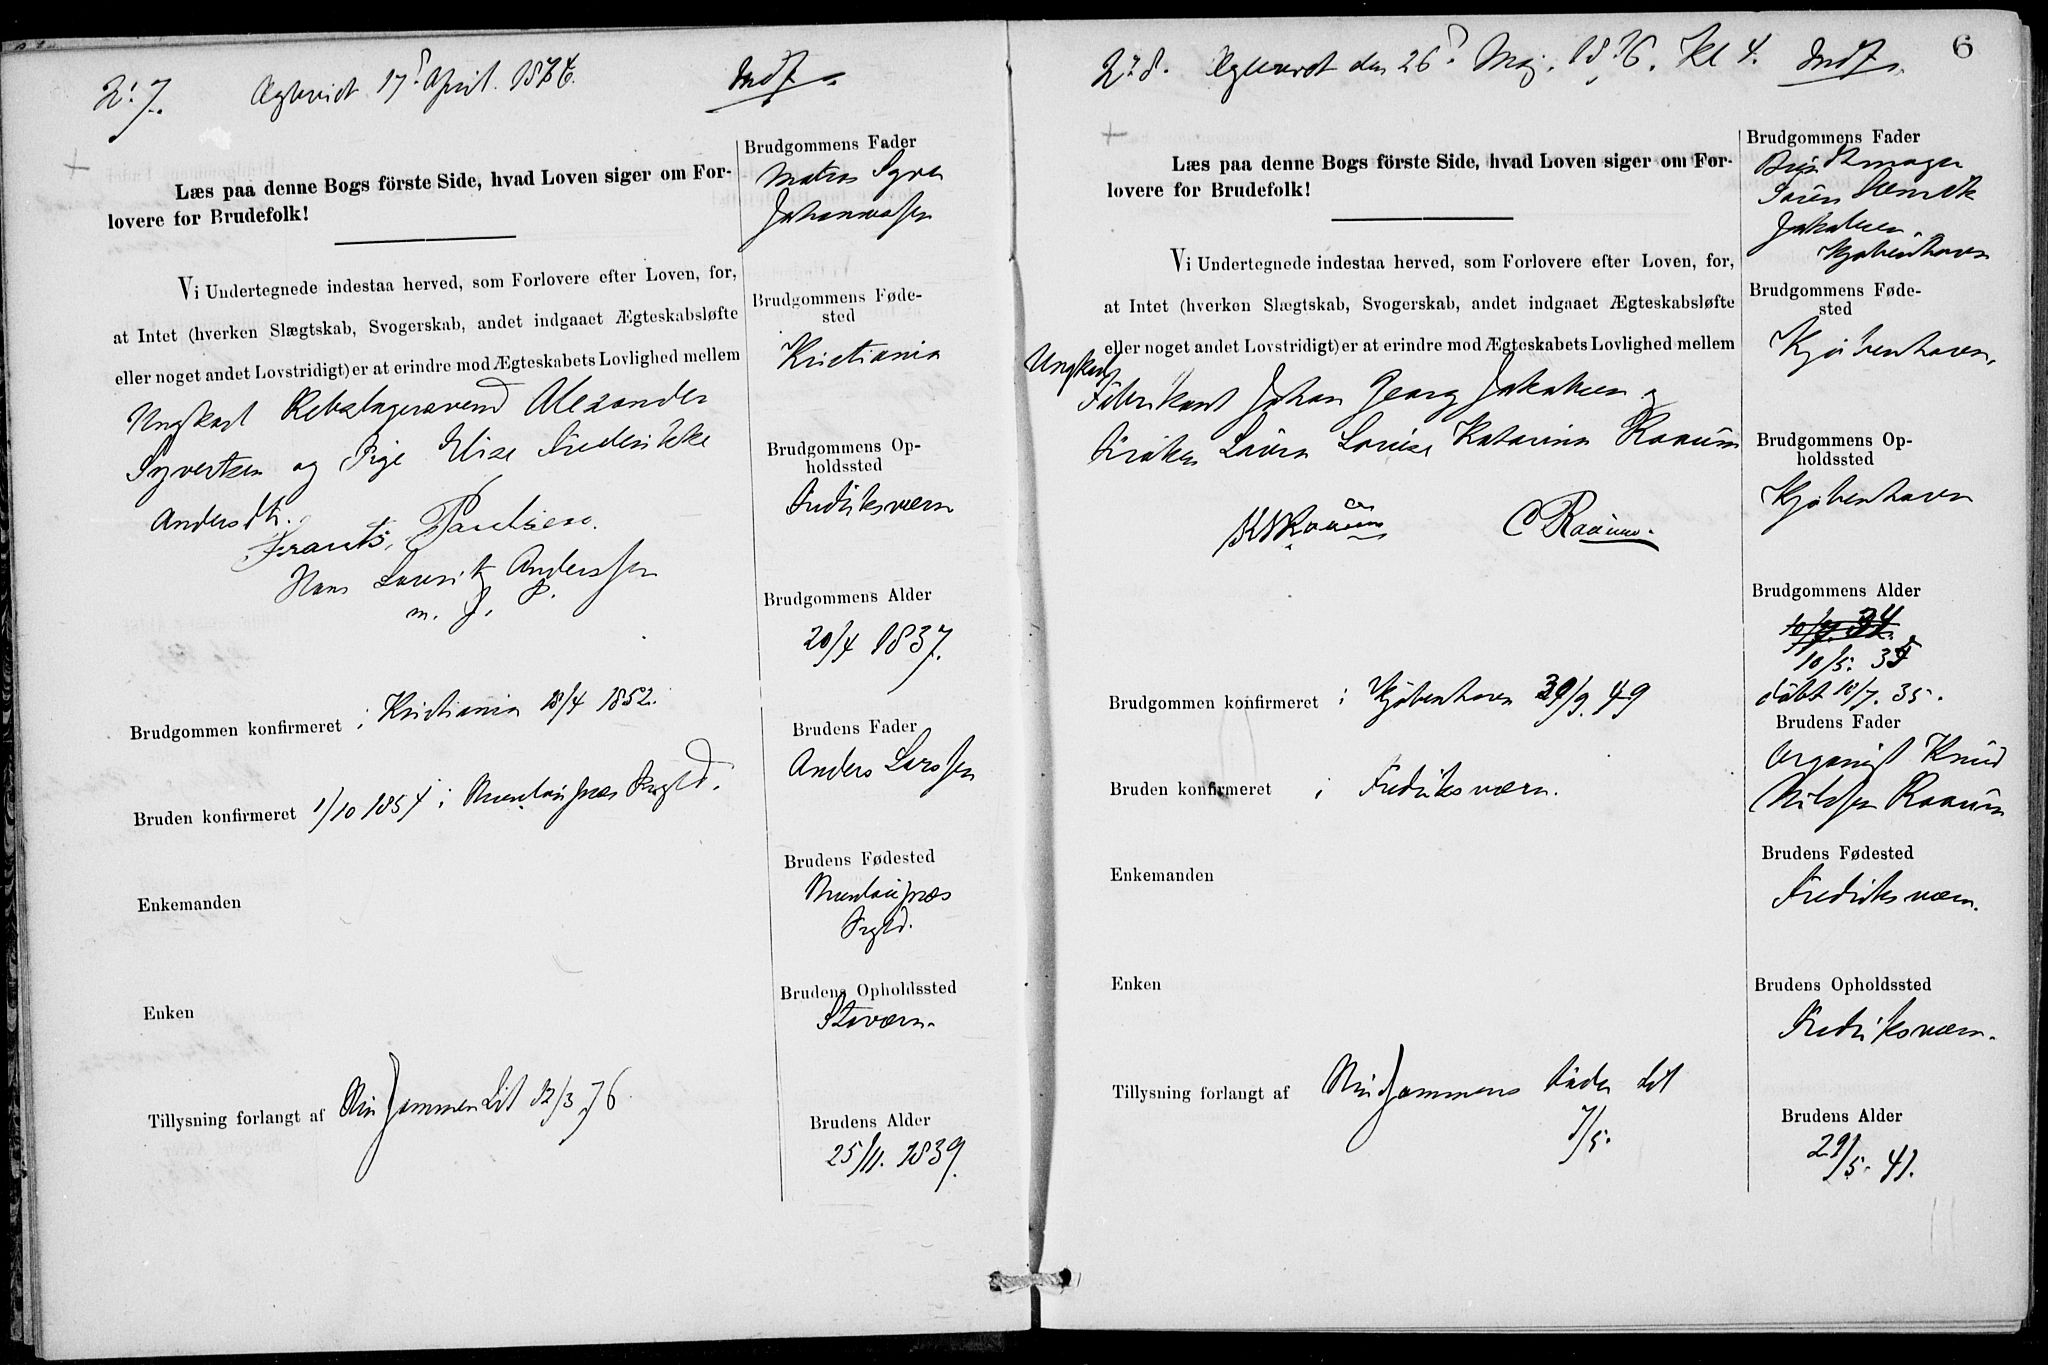 No 7. Ægteviet 17de April. 1876. Indf.
Læs paa denne Bogs förste Side, hvad Loven siger om For-
lovere for Brudefolk!
Vi Undertegnede indestaa herved, som Forlovere efter Loven, for,
at Intet (hverken Slægtskab, Svogerskab, andet indgaaet Ægteskabsløfte
eller noget andet Lovstridigt) er at erindre mod Ægteskabets Lovlighed mellem
Ungkarl Rebslagersvend Alexander
Syvertsen og Pige Elise Frederikke
Andersdtr.
Frants Paulsen.
Hans Laurik Anderssen
m. f. P.
Brudgommen konfirmeret i Kristiania 18/4 1852.
Bruden konfirmeret 1/10 1854 i Brunlanæs Prgld.
Enkemanden
Enken
Tillysning forlangt af Brudgommen Lit 12/3 76
Brudgommens Fader
Matros Syver
Johannessen
Brudgommens Føde-
sted
Kristiania
Brudgommens Op-
holdssted
Fredriksværn
Brudgommens Alder
20/4 1837.
Brudens Fader
Anders Larssen
Brudens Fødested
Brunlanæs
Prgld.
Brudens Opholdssted
Staværn.
Brudens Alder
25/11. 1839.
6
No 8. Ægteviet den 26de Maj. 1876. Kl 4. Indf.
Læs paa denne Bogs förste Side, hvad Loven siger om For-
lovere for Brudefolk!
Vi Undertegnede indestaa herved, som Forlovere efter Loven, for,
at Intet (hverken Slægtskab, Svogerskab, andet indgaaet Ægteskabsløfte
eller noget andet Lovstridigt) er at erindre mod Ægteskabets Lovlighed mellem
Ungkarl
Fabrikant Johan Georg Jakobsen og
Frøken Laura Louise Katarina Raaum
KNRaaum C Raaum.
Brudgommen konfirmeret i Kjøbenhavn 30/9. 49
Bruden konfirmeret i Fredriksværn.
Enkemanden
Enken
Tillysning forlangt af Brudgommens Fader Lit
7/5.
Brudgommens Fader
Søren Henrik
Jakobsen
Kjøbenhavn
Brudgommens Føde-
sted
Kjøbenhavn.
Brudgommens Op-
holdssted
Kjøbenhavn
Brudgommens Alder
10/5. 35
døbt 10/7. 35.
Brudens Fader
Organist Knud
Nilssen Raaum
Brudens Fødested
Fredriksværn.
Brudens Opholdssted
Fredriksværn.
Brudens Alder
29/5. 41.